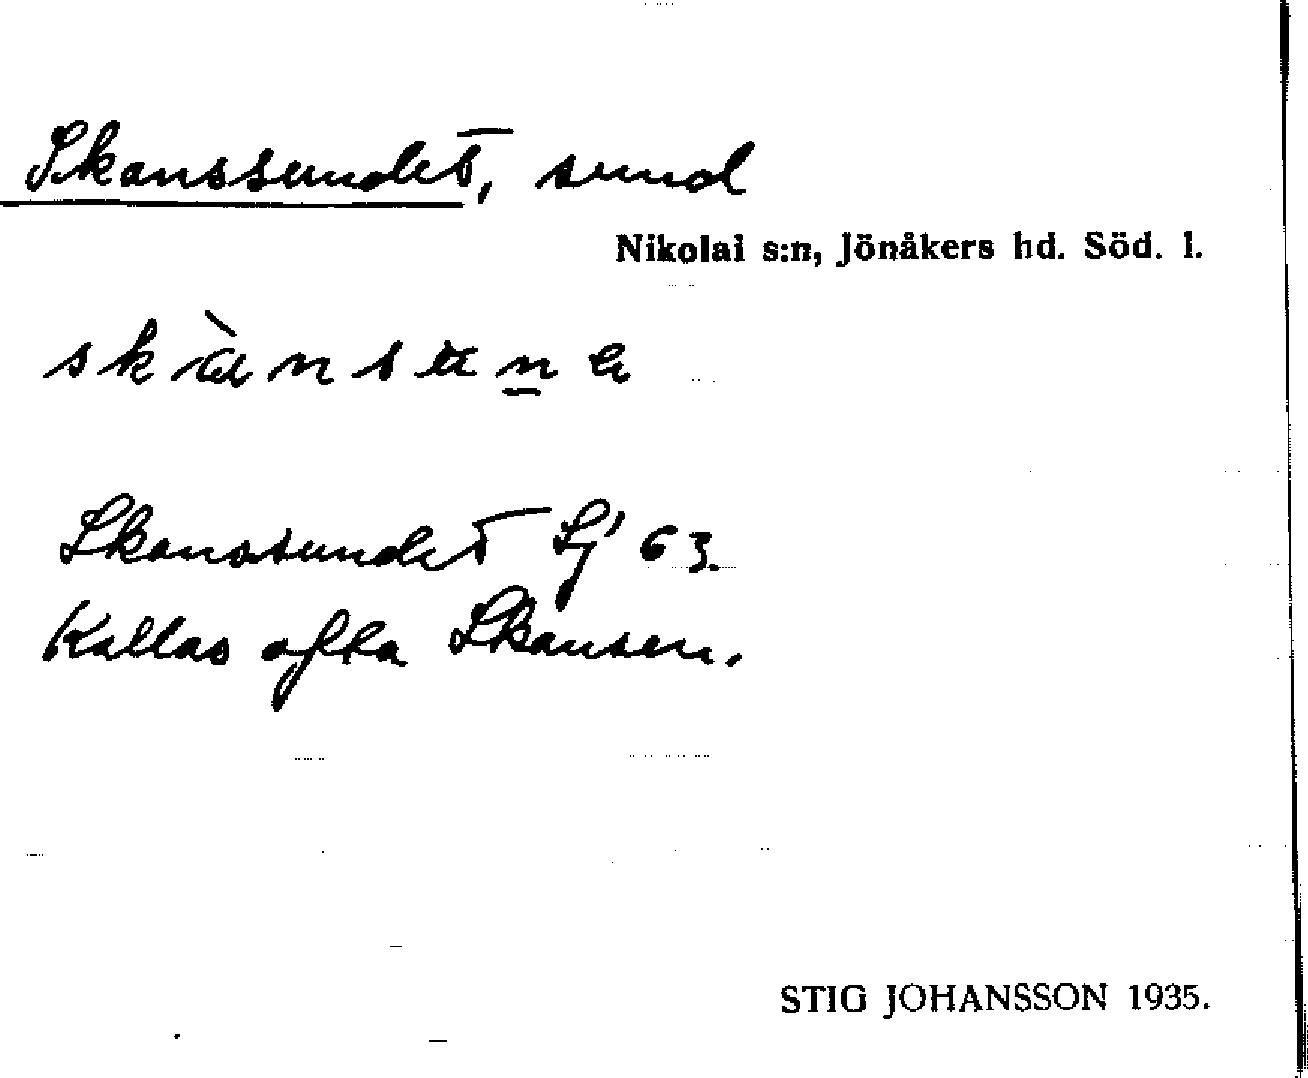 Skanssundet, sund
Nikolai s:n, Jönåkers hd. Söd. l.
Skanssundet Sj 63.
Kallas ofta Skansen.
STIG JOHANSSON 1935.